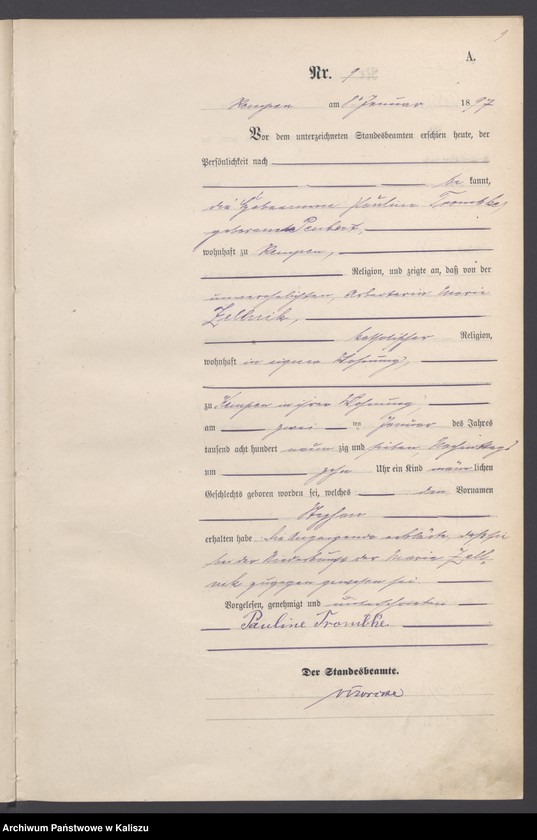 9
A.
Nr. 9
Kempen am 8 Januar 1897
Vor dem unterzeichneten Standesbeamten erschien heute, der
Persönlichkeit nach
be kannt,
die Hebeamme Pauline Trombke,
geborene Penkert,
wohnhaft zu Kempen,
Religion, und zeigte an, daß von der
unverehelichten, Arbeiterin Marie
Zellnik,
katholischer Religion,
wohnhaft in eigener Wohnung,
zu Kempen in ihrer Wohnung,
am zwei ten Januar des Jahres
tausend acht hundert neun zig und sieben, Nachmittags
um zehn Uhr ein Kind männlichen
Geschlechts geboren worden sei, welches den Vornamen
Stephan
erhalten habe. Die Anzeigende erklärte, daß sie
bei der Niederkunft der Marie Zell-
nik zugegen gewesen sei.
Vorgelesen, genehmigt und unterschrieben
Pauline Trombke.
Der Standesbeamte.
Archiwum Państwowe w Kaliszu